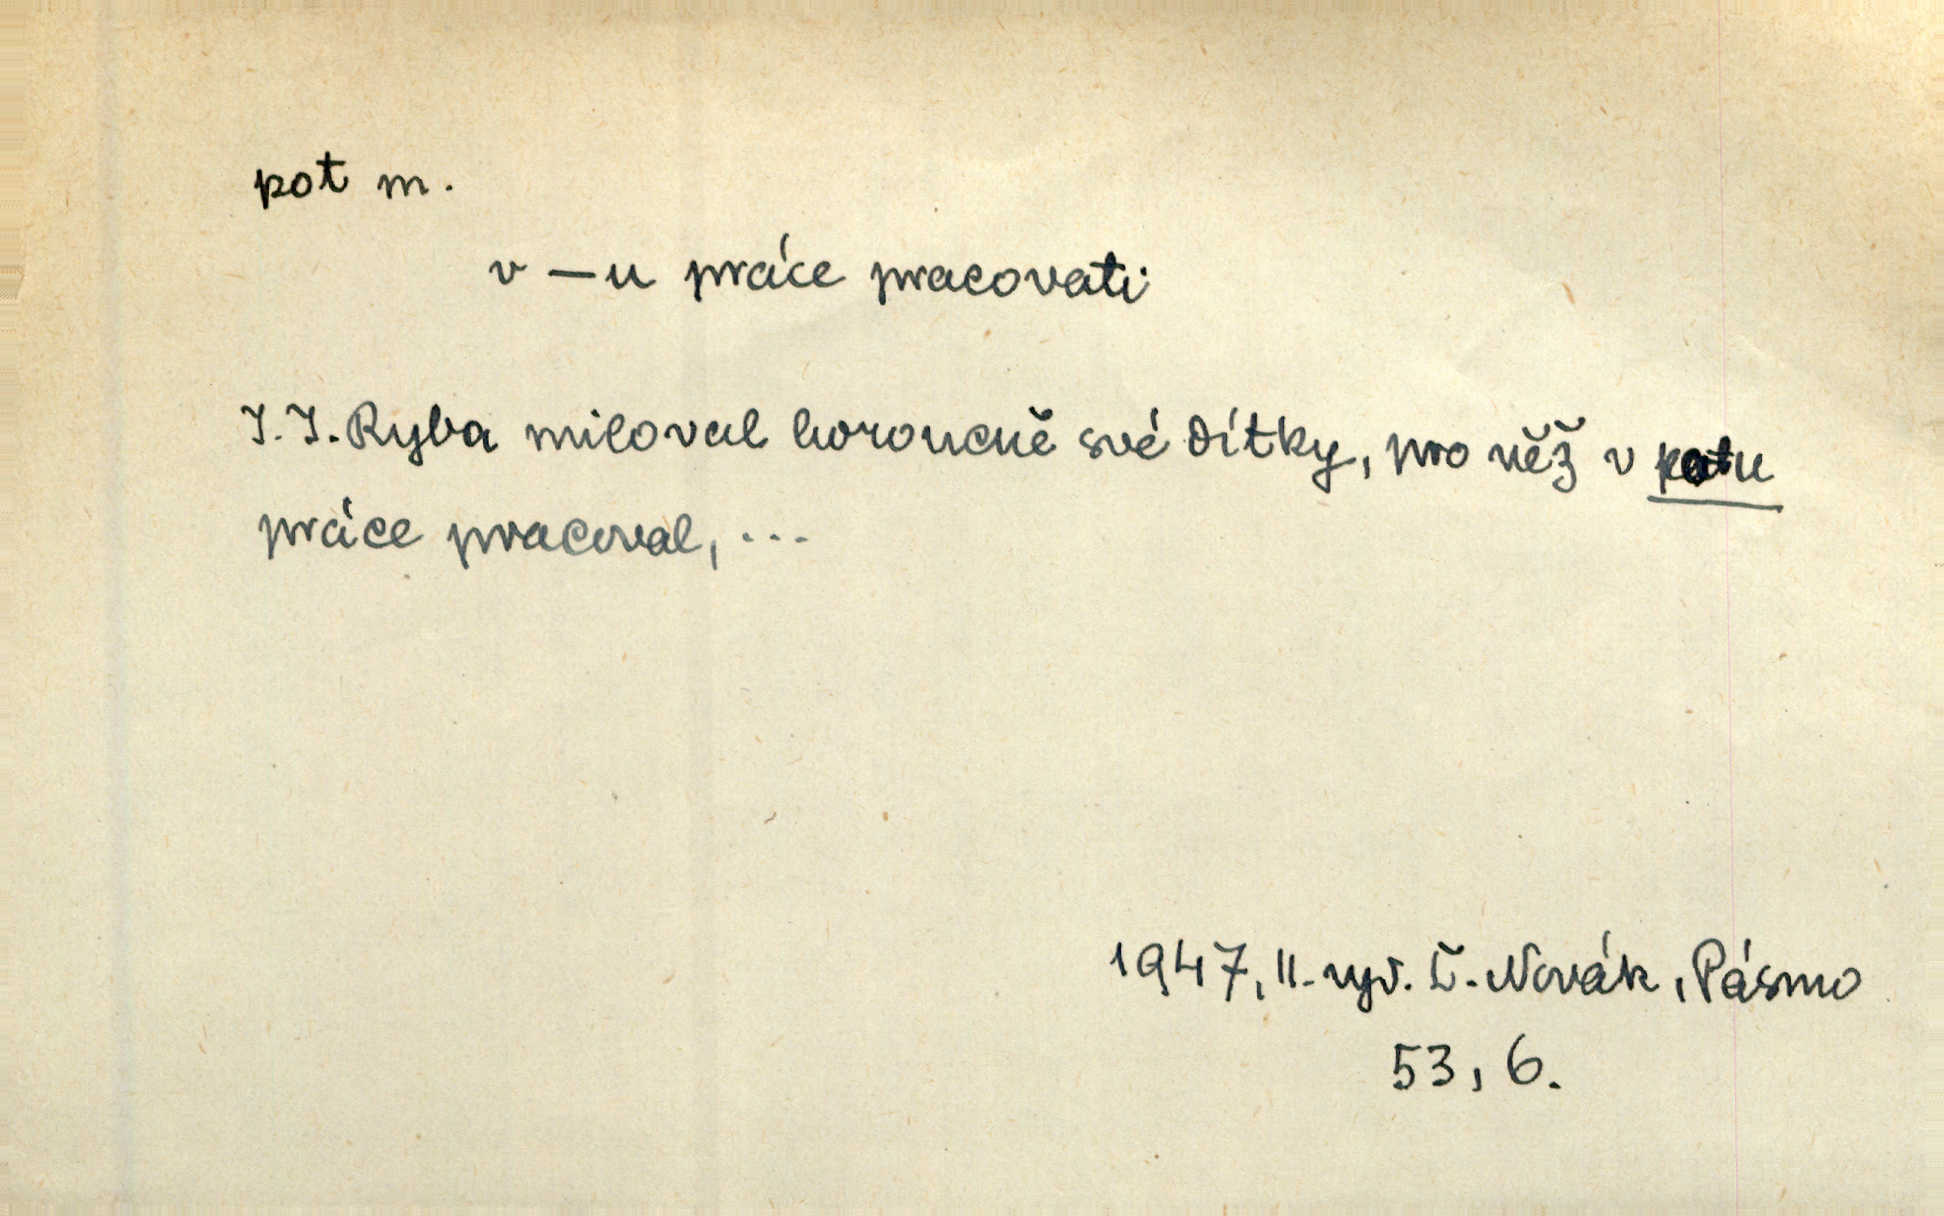 pot m.
v —u práce pracovati
J. J. Ryba miloval horoucně své dítky, pro něž v potu
práce pracoval, ...
1947, II. vyd. Č. Novák, Pásmo
53, 6.